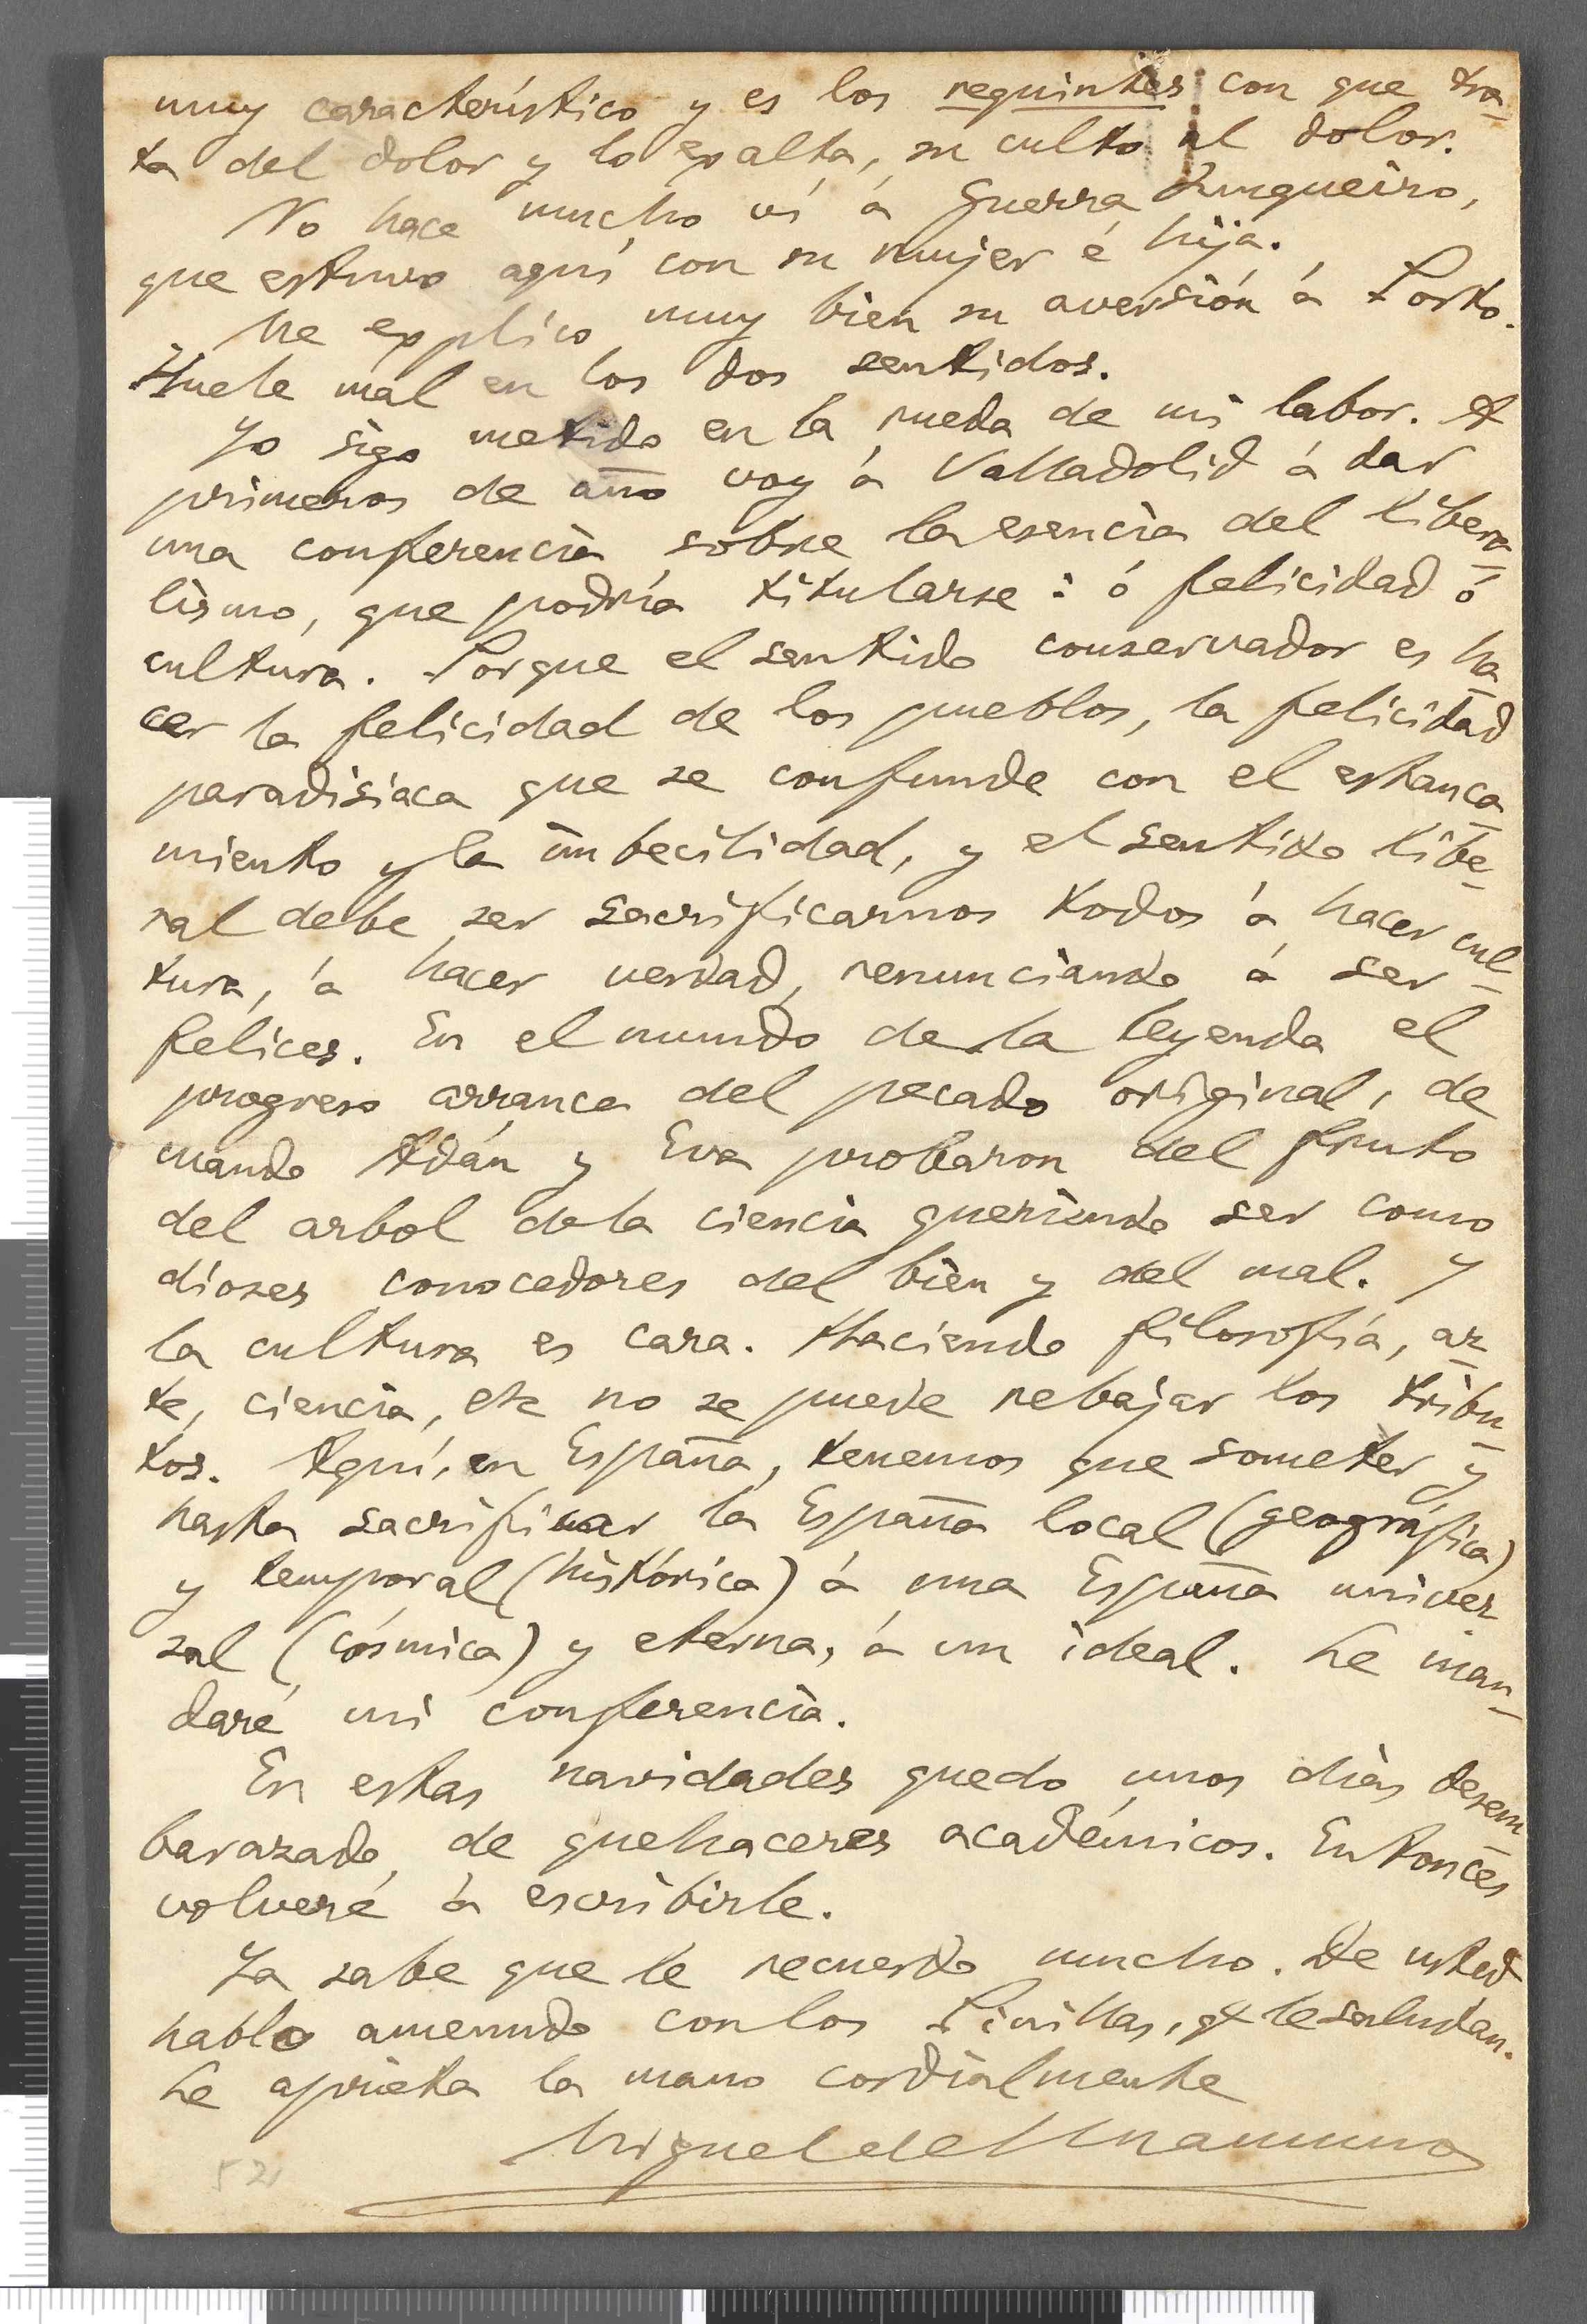 muy característico y es los requintes con que tra-
ta del dolor y lo exalta, su culto al dolor.
No hace mucho ví á Guerra Junqueiro,
que estuvo aquí con su mujer é hija.
Me explico muy bien su aversión á Porto.
Huele mal en los dos sentidos.
Yo sigo metido en la rueda de mi labor. A
primeros de año voy á Valladolid á dar
una conferencia sobre la esencia del libera-
lismo, que podría titularse: ó felicidad ó
cultura. Porque el sentido conservador es ha-
cer la felicidad de los pueblos, la felicidad
paradisiaca que se confunde con el estanca-
miento y la imbecilidad, y el sentido libe-
ral debe ser sacrificarnos todos á hacer cul-
tura, á hacer verdad, renunciando á ser
felices. En el mundo de la leyenda el
progreso arranca del pecado original, de
cuando Adán y Eva probaron del fruto
del arbol de la ciencia queriendo ser como
dioses conocedores del bien y del mal. Y
la cultura es cara. Haciendo filosofía, ar-
te, ciencia, etc no se puede rebajar los tribu-
tos. Aquí, en España, tenemos que someter y
hasta sacrificar la España local (geográfica)
y temporal (histórica) á una España univer-
sal (cósmica) y eterna, á un ideal. Le man-
daré mi conferencia.
En estas navidades quedo unos días desem-
barazado de quehaceres académicos. Entonces
volveré á escribirle.
Ya sabe que le recuerdo mucho. De usted
hablo amenudo con los Pinillas, q̶ le saludan.
Le aprieta la mano cordialmente
Miguel de Unamuno
521